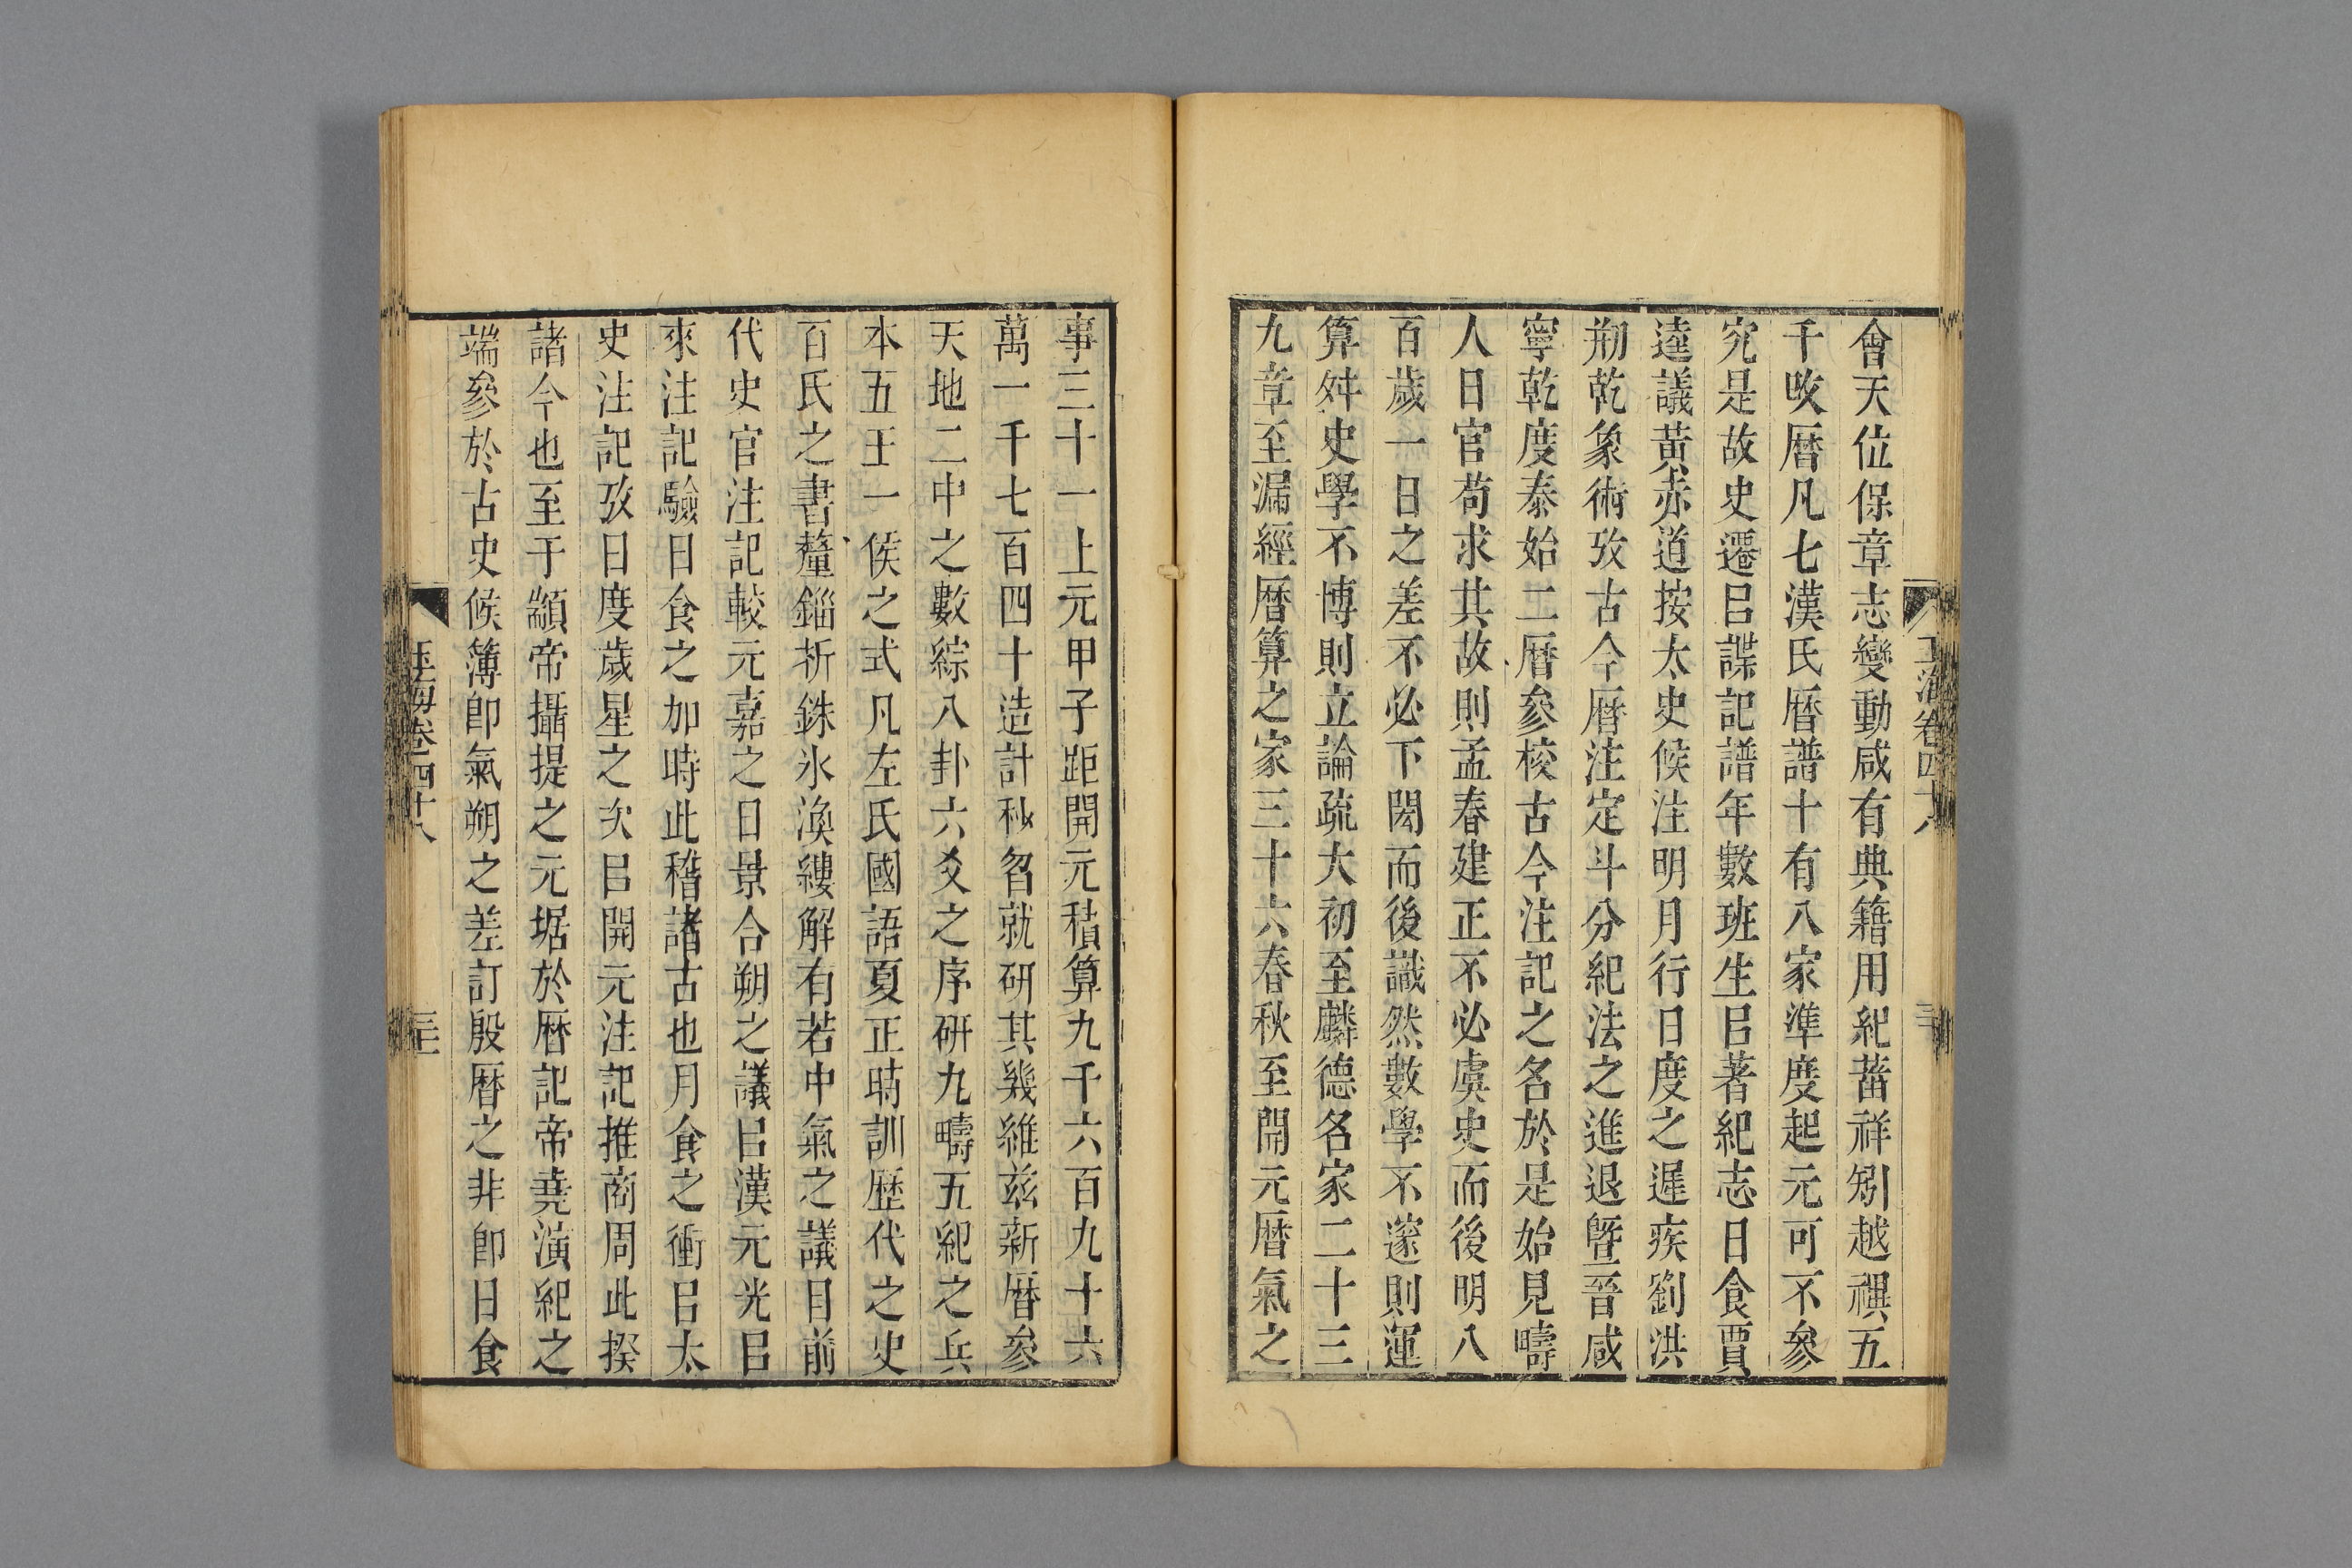 會天位保章志變動咸有典籍用紀葘祥矧越禩五
千攺曆凡七漢氏曆譜十有八家準度起元可不參
究是故史遷㠯諜記譜年數班生㠯著紀志日食賈
逵議黃赤道按太史候注明月行日度之遲疾劉洪
剏乾象術攷古今曆注定斗分紀法之進退曁晉咸
寧乾度泰始二曆參校古今注記之名於是始見疇
人日官苟求其故則孟春建正不必虞史而後明八
百歲一日之差不必下閎而後識然數學不邃則運
算舛史學不博則立論疏大初至麟德名家二十三
九章至漏經曆算之家三十六春秋至開元曆氣之
玉海卷四十八
事三十一上元甲子距開元積算九千六百九十六
萬一千七百四十造計秒㠯就研其幾維兹新曆參
天地二中之數綜八卦六爻之序研九疇五紀之兵
本五王一侯之式凡左氏國語夏正時訓歷代之史
百氏之書釐錙析銖氷渙縷解有若中氣之議㠯前
代史官注記較元嘉之日景合朔之議㠯漢元光㠯
來注記驗日食之加時此稽諸古也月食之衝㠯太
史注記攷日度歲星之次㠯開元注記推商周此揆
諸今也至于顓帝攝提之元㨿於曆記帝堯演紀之
端參於古史候簿卽氣朔之差訂殷曆之非卽日食
玉海卷四十八